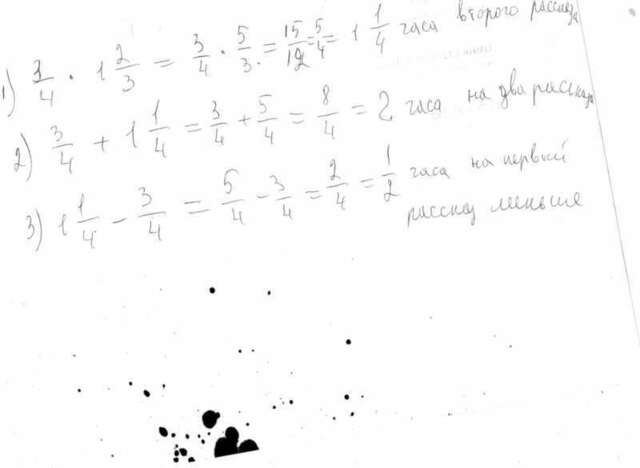 1) 3/4 · 1 2/3 = 3/4 · 5/3 = 15/12 = 5/4 = 1 1/4 часа второго рассказа
2) 3/4 + 1 1/4 = 3/4 + 5/4 = 8/4 = 2 часа на два рассказа
3) 1 1/4 - 3/4 = 5/4 - 3/4 = 2/4 = 1/2 часа на первый
рассказ меньше